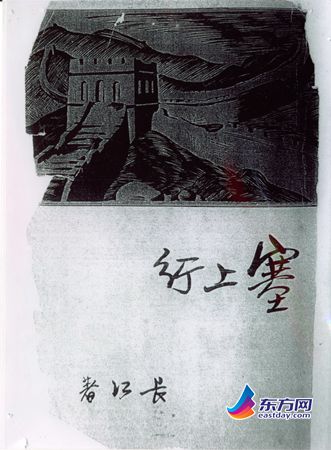 塞上行
長江著
东方网
eastday.com